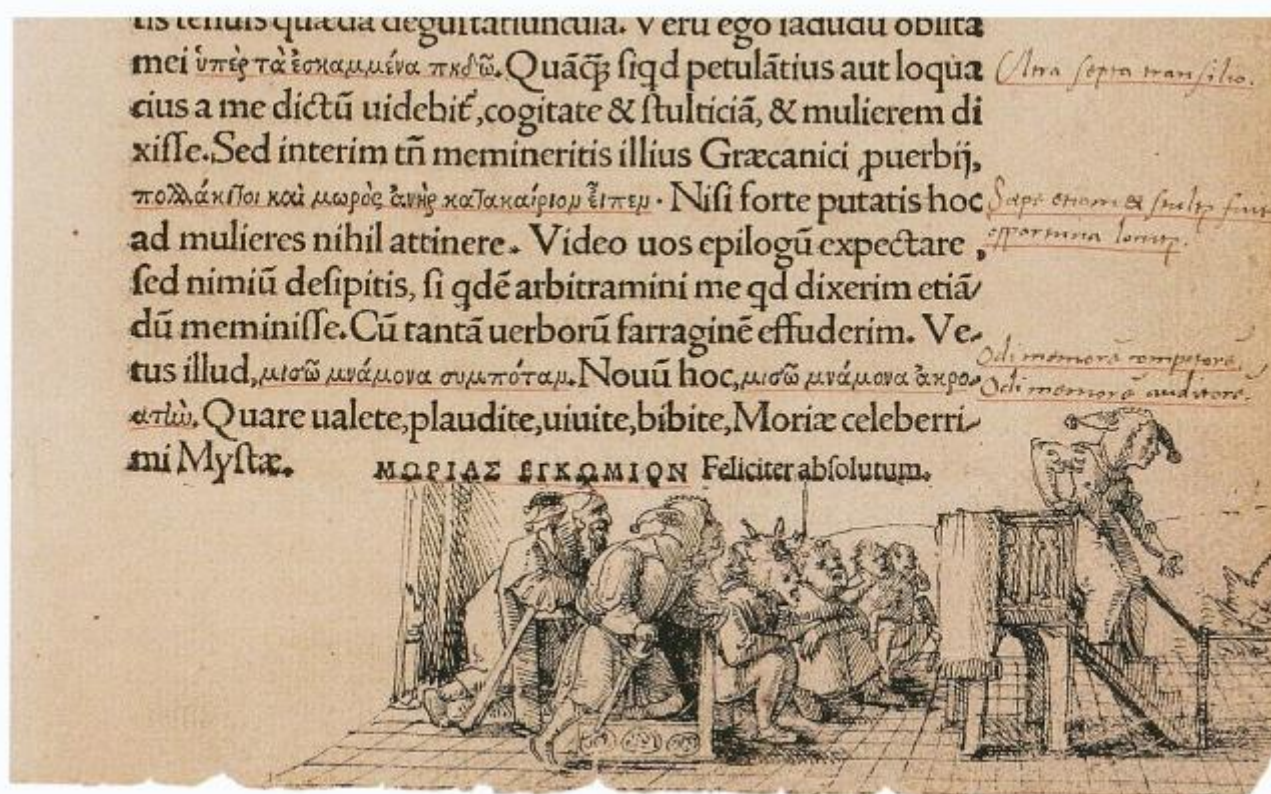 tis tenuis quædã degustatiuncula. Verũ ego iãdudũ oblita
mei ὑπὲρ τὰ ἐσκαμμένα πηδῶ. Quãq̃ꝫ siqd petulãtius aut loqua
cius a me dictũ uidebit̃, cogitate & stulticiã, & mulierem di
xisse. Sed interim tñ memineritis illius Græcanici ꝓuerbij,
πολλάκι τοι καὶ μωρὸς ἀνὴρ κατακαίριον εἶπεν. Nisi forte putatis hoc
ad mulieres nihil attinere. Video uos epilogũ expectare,
sed nimiũ desipitis, si qdẽ arbitramini me qd dixerim etiã/
dũ meminisse. Cũ tantã uerborũ farraginẽ effuderim. Ve/
tus illud, μισῶ μνάμονα συμπόταν. Nouũ hoc, μισῶ μνάμονα ἀκρο/
ατὴν. Quare ualete, plaudite, uiuite, bibite, Moriæ celeberri/
mi Mystæ.
ΜΩΡΙΑΣ ΕΓΚΩΜΙΟΝ Feliciter absolutum.
Ultra septa transilio.
Sæpe etiam
opportuna
Odi memorẽ compotorẽ.
Odi memorẽ auditorẽ.